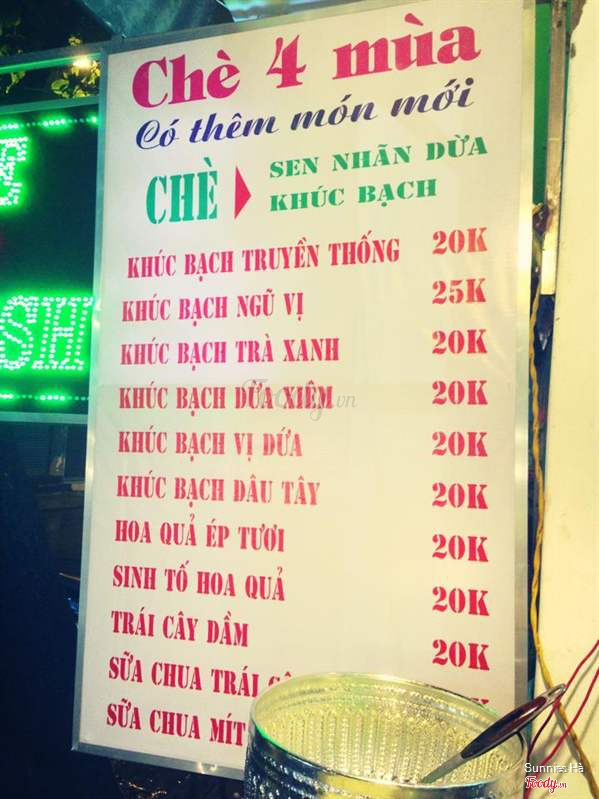 Chè 4 mùa
Có thêm món mới
CHÈ
SEN NHÃN DỪA
KHÚC BẠCH
KHÚC BẠCH TRUYỀN THỐNG 20K
KHÚC BẠCH NGŨ VỊ 25K
KHÚC BẠCH TRÀ XANH 20K
KHÚC BẠCH DỪA XIÊM 20K
KHÚC BẠCH VỊ DỨA 20K
KHÚC BẠCH DÂU TÂY 20K
HOA QUẢ ÉP TƯƠI 20K
SINH TỐ HOA QUẢ 20K
TRÁI CÂY DẦM 20K
SỮA CHUA TRÁI
SỮA CHUA MÍT
SH
Foody.vn
Sunniss Hà
Foody.vn